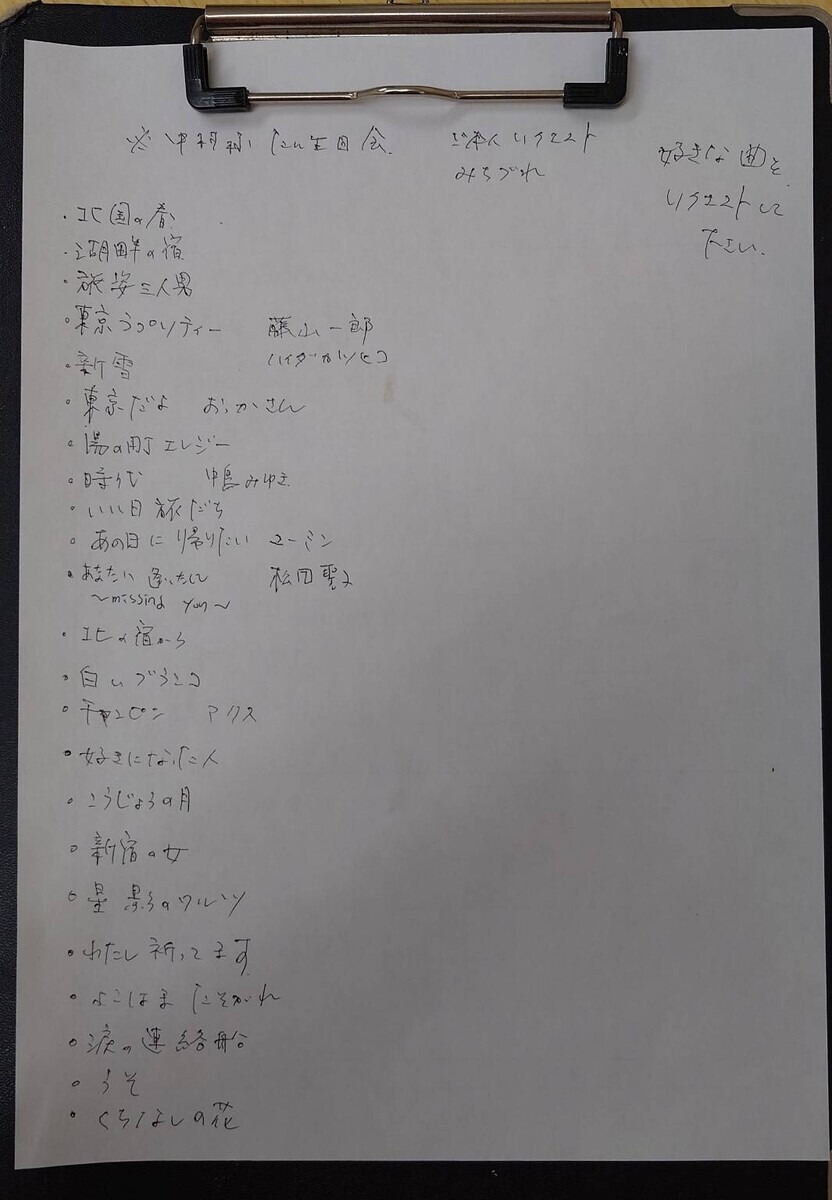 ※中村様 たん生日会
ご本人リクエスト
みちづれ
好きな曲を
リクエストして
下さい.
・北国の春
・湖畔の宿
・旅姿三人男
・東京ラプソディー 藤山一郎
・新雪 ハイダカツヒコ
・東京だよ おっかさん
・湯の町エレジー
・時代 中島みゆき
・いい日旅だち
・あの日に帰りたい ユーミン
・あなたに逢いたくて 松田聖子
〜missing you〜
・北の宿から
・白いブランコ
・チャンピン アリス
・好きになった人
・こうじょうの月
・新宿の女
・星影のワルツ
・わたし祈ってます
・よこはま たそがれ
・涙の連絡船
・うそ
・くちなしの花